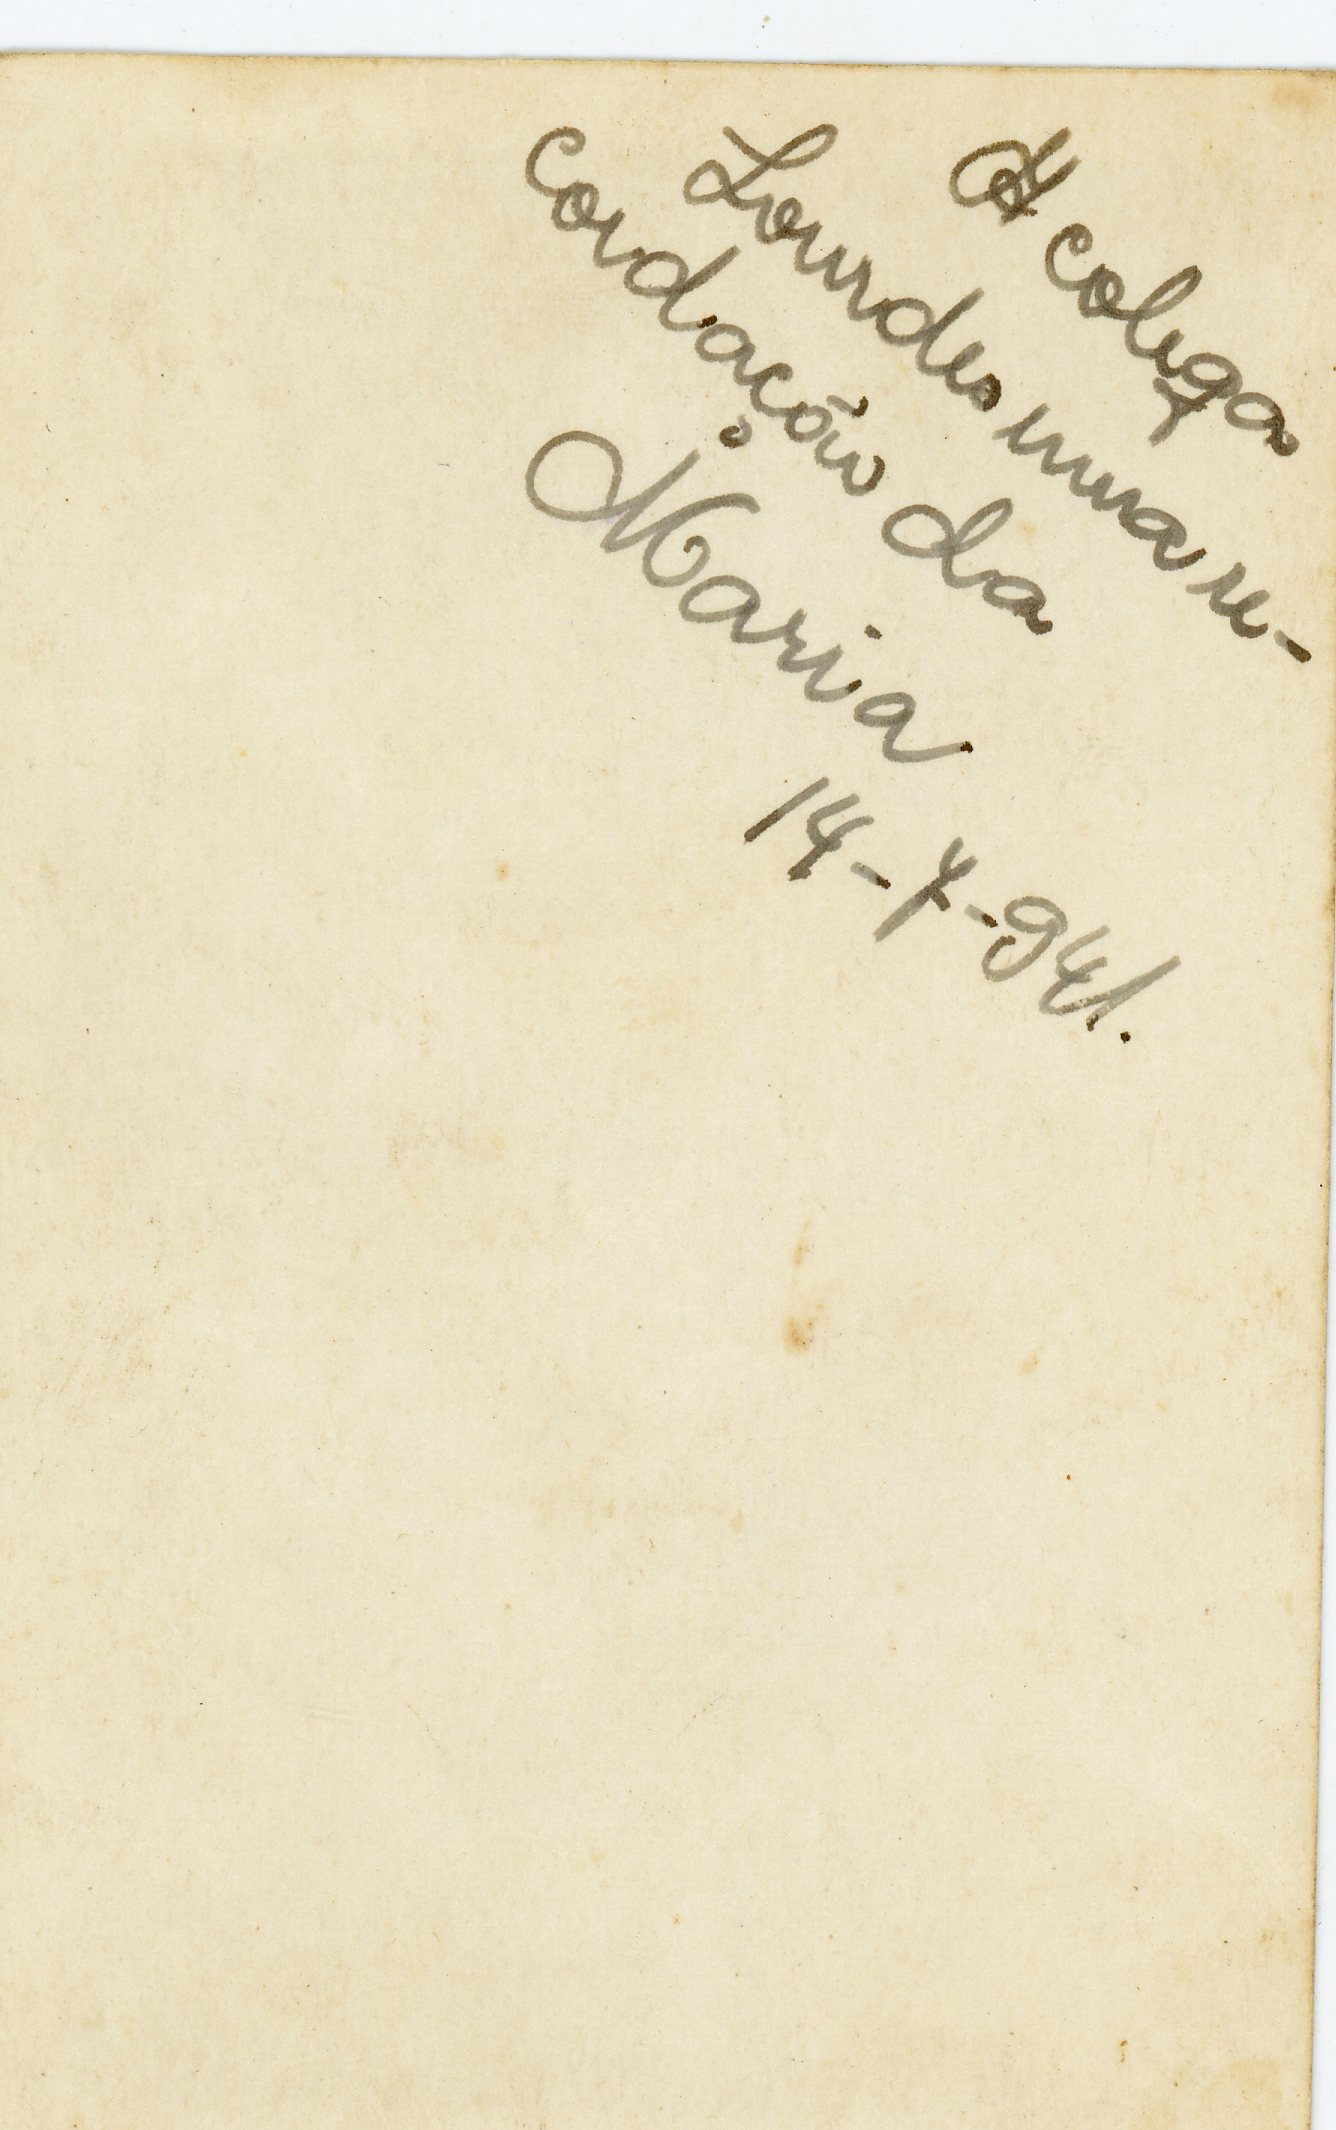 A colega
Lourdes uma re-
cordação da
Maria
14-7-941.